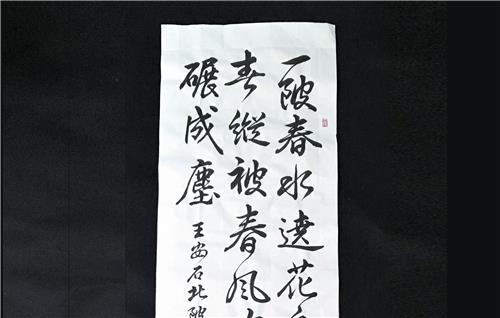 一陂春水遶花
春縱被春风
碾成塵
王安石北陂